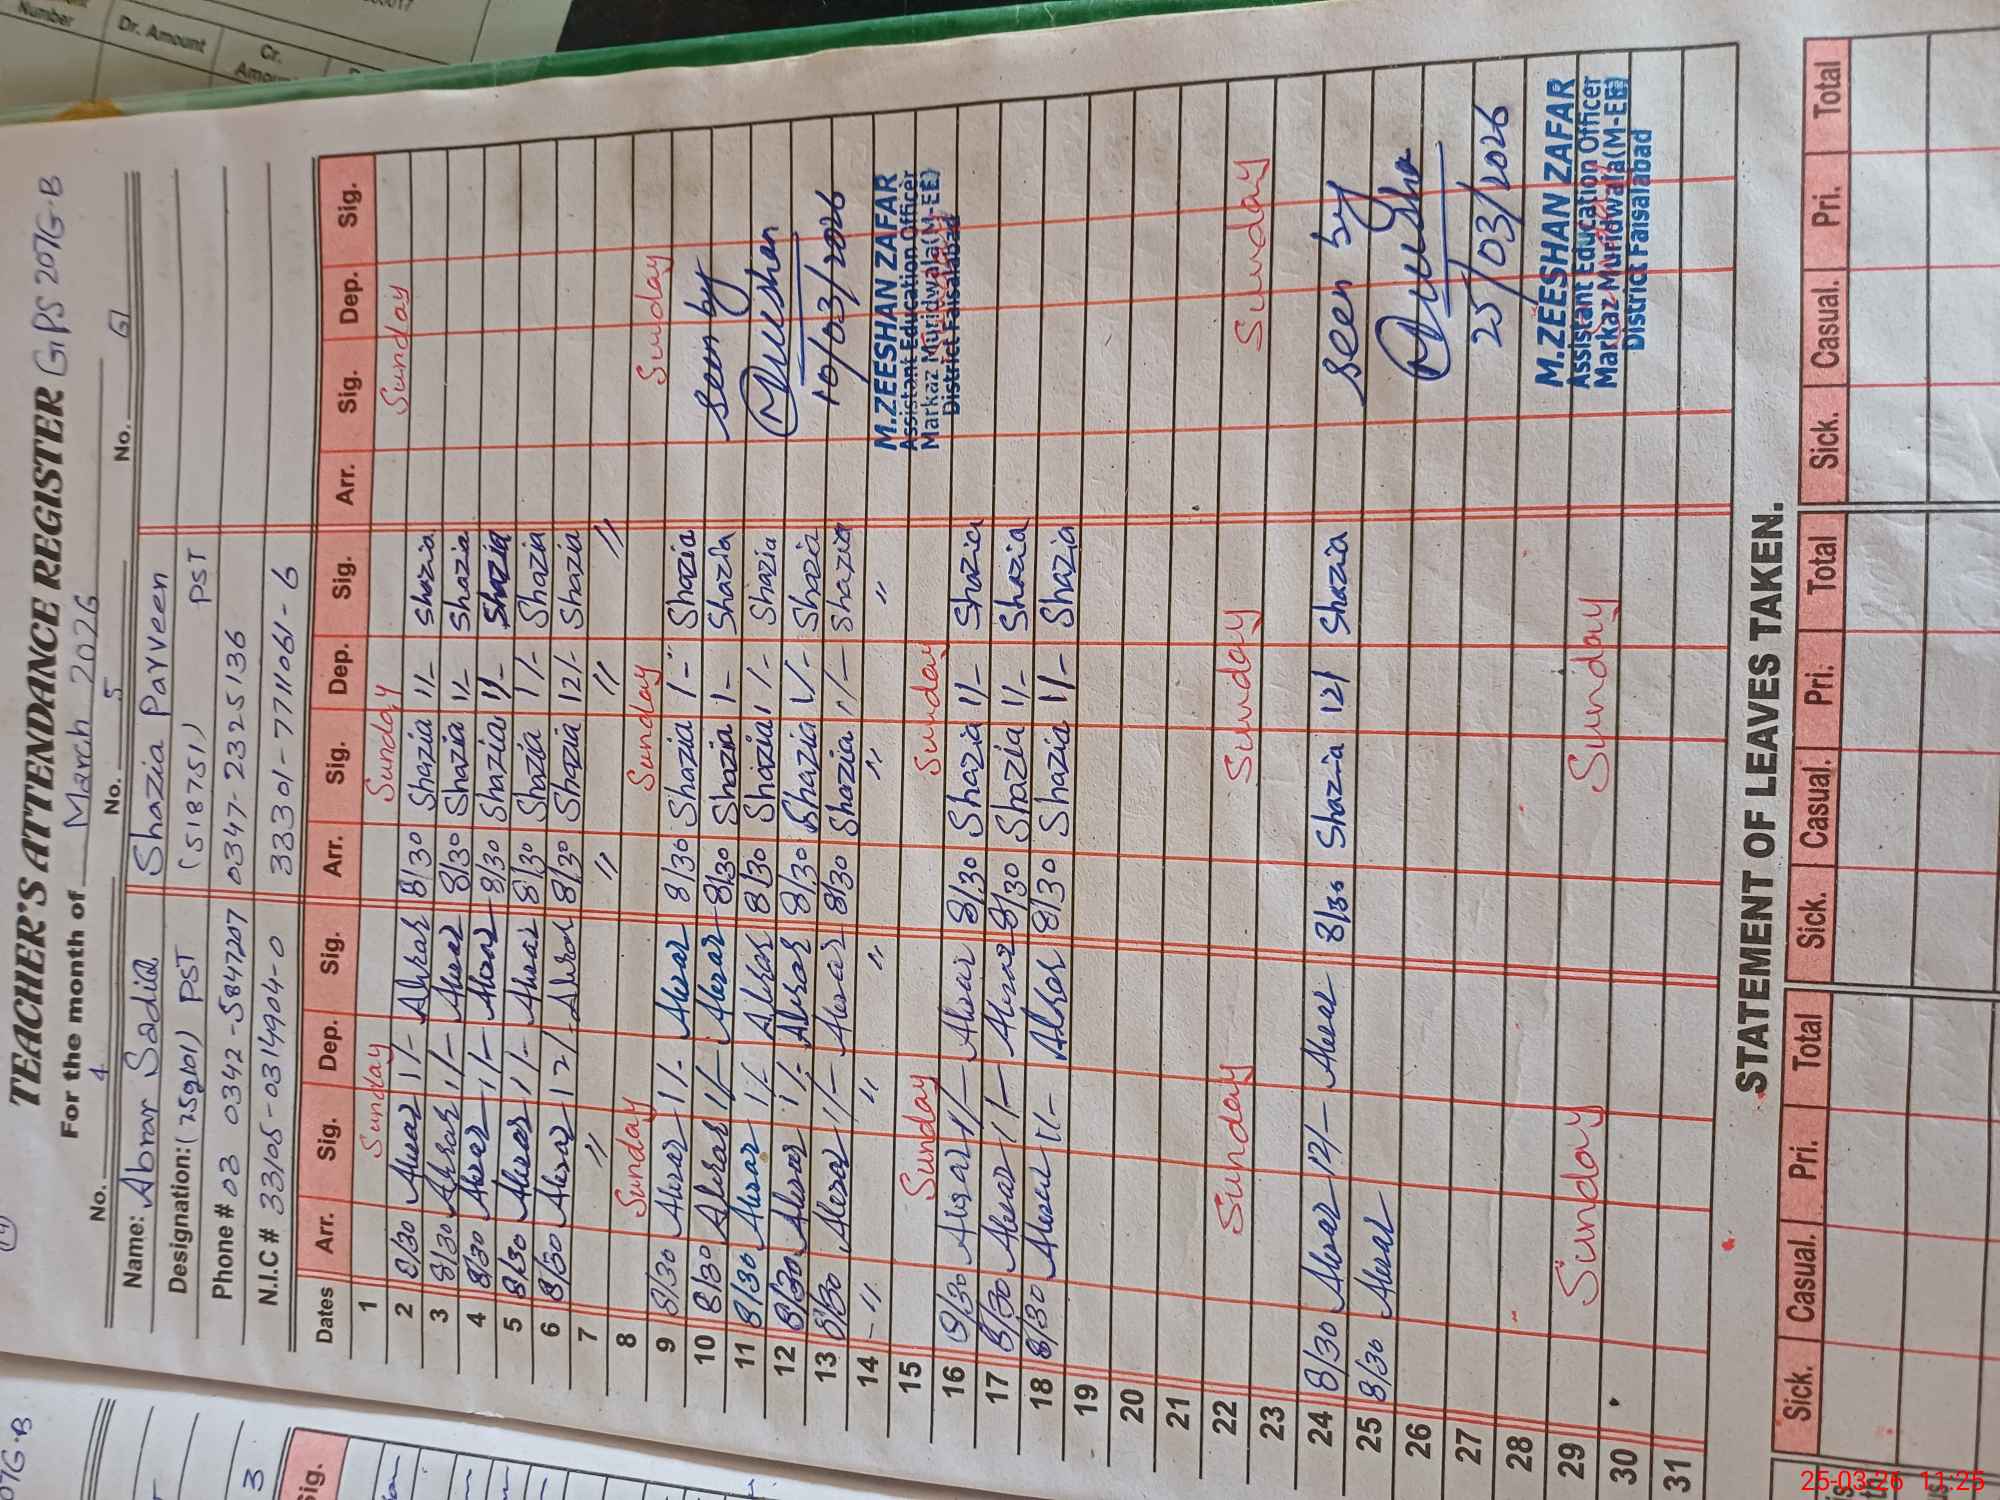 TEACHER'S ATTENDANCE REGISTER GPS 207G.B
For the month of March 2026
No. 4 No. 5 No. 6
Name: Abrar Sadia Shazia Parveen
Designation: PST (518751) PST
Phone # 03 0342-5847207 0347-2325136
N.I.C # 33105-0314904-0 33301-7711061-6
Dates Arr. Sig. Dep. Sig. Arr. Sig. Dep. Sig. Arr. Sig. Dep. Sig.
1 Sunday Sunday Sunday
2 8/30 Abrar 1/- Abrar 8/30 Shazia 1/- Shazia
3 8/30 Abrar 1/- Abrar 8/30 Shazia 1/- Shazia
4 8/30 Abrar 1/- Abrar 8/30 Shazia 1/- Shazia
5 8/30 Abrar 1/- Abrar 8/30 Shazia 1/- Shazia
6 8/30 Abrar 12/- Abrar 8/30 Shazia 12/- Shazia
7 " " " "
8 Sunday Sunday Sunday
9 8/30 Abrar 1/- Abrar 8/30 Shazia 1- Shazia
10 8/30 Abrar 1/- Abrar 8/30 Shazia 1- Shazia seen by
11 8/30 Abrar 1/- Abrar 8/30 Shazia 1/- Shazia
12 8/30 Abrar 1/- Abrar 8/30 Shazia 1/- Shazia
13 8/30 Abrar 1/- Abrar 8/30 Shazia 1/- Shazia 10/03/2026
14 - " " " " "
M.ZEESHAN ZAFAR
Assistant Education Officer
Markaz Muridwala(M-EE)
District Faisalabad
15 Sunday Sunday
16 8/30 Abrar 1/- Abrar 8/30 Shazia 1/- Shazia
17 8/30 Abrar 1/- Abrar 8/30 Shazia 1/- Shazia
18 8/30 Abrar 1/- Abrar 8/30 Shazia 1/- Shazia
19
20
21
22 Sunday Sunday Sunday
23
24 8/30 Abrar 12/- Abrar 8/30 Shazia 12/ Shazia seen by
25 8/30 Abrar
26
27 25/03/2026
28
M.ZEESHAN ZAFAR
Assistant Education Officer
Markaz Muridwala(M-EE)
District Faisalabad
29 Sunday Sunday
30
31
STATEMENT OF LEAVES TAKEN.
Sick. Casual. Pri. Total Sick. Casual. Pri. Total Sick. Casual. Pri. Total
Number
Dr. Amount
Cr.
25-03-26 11:25